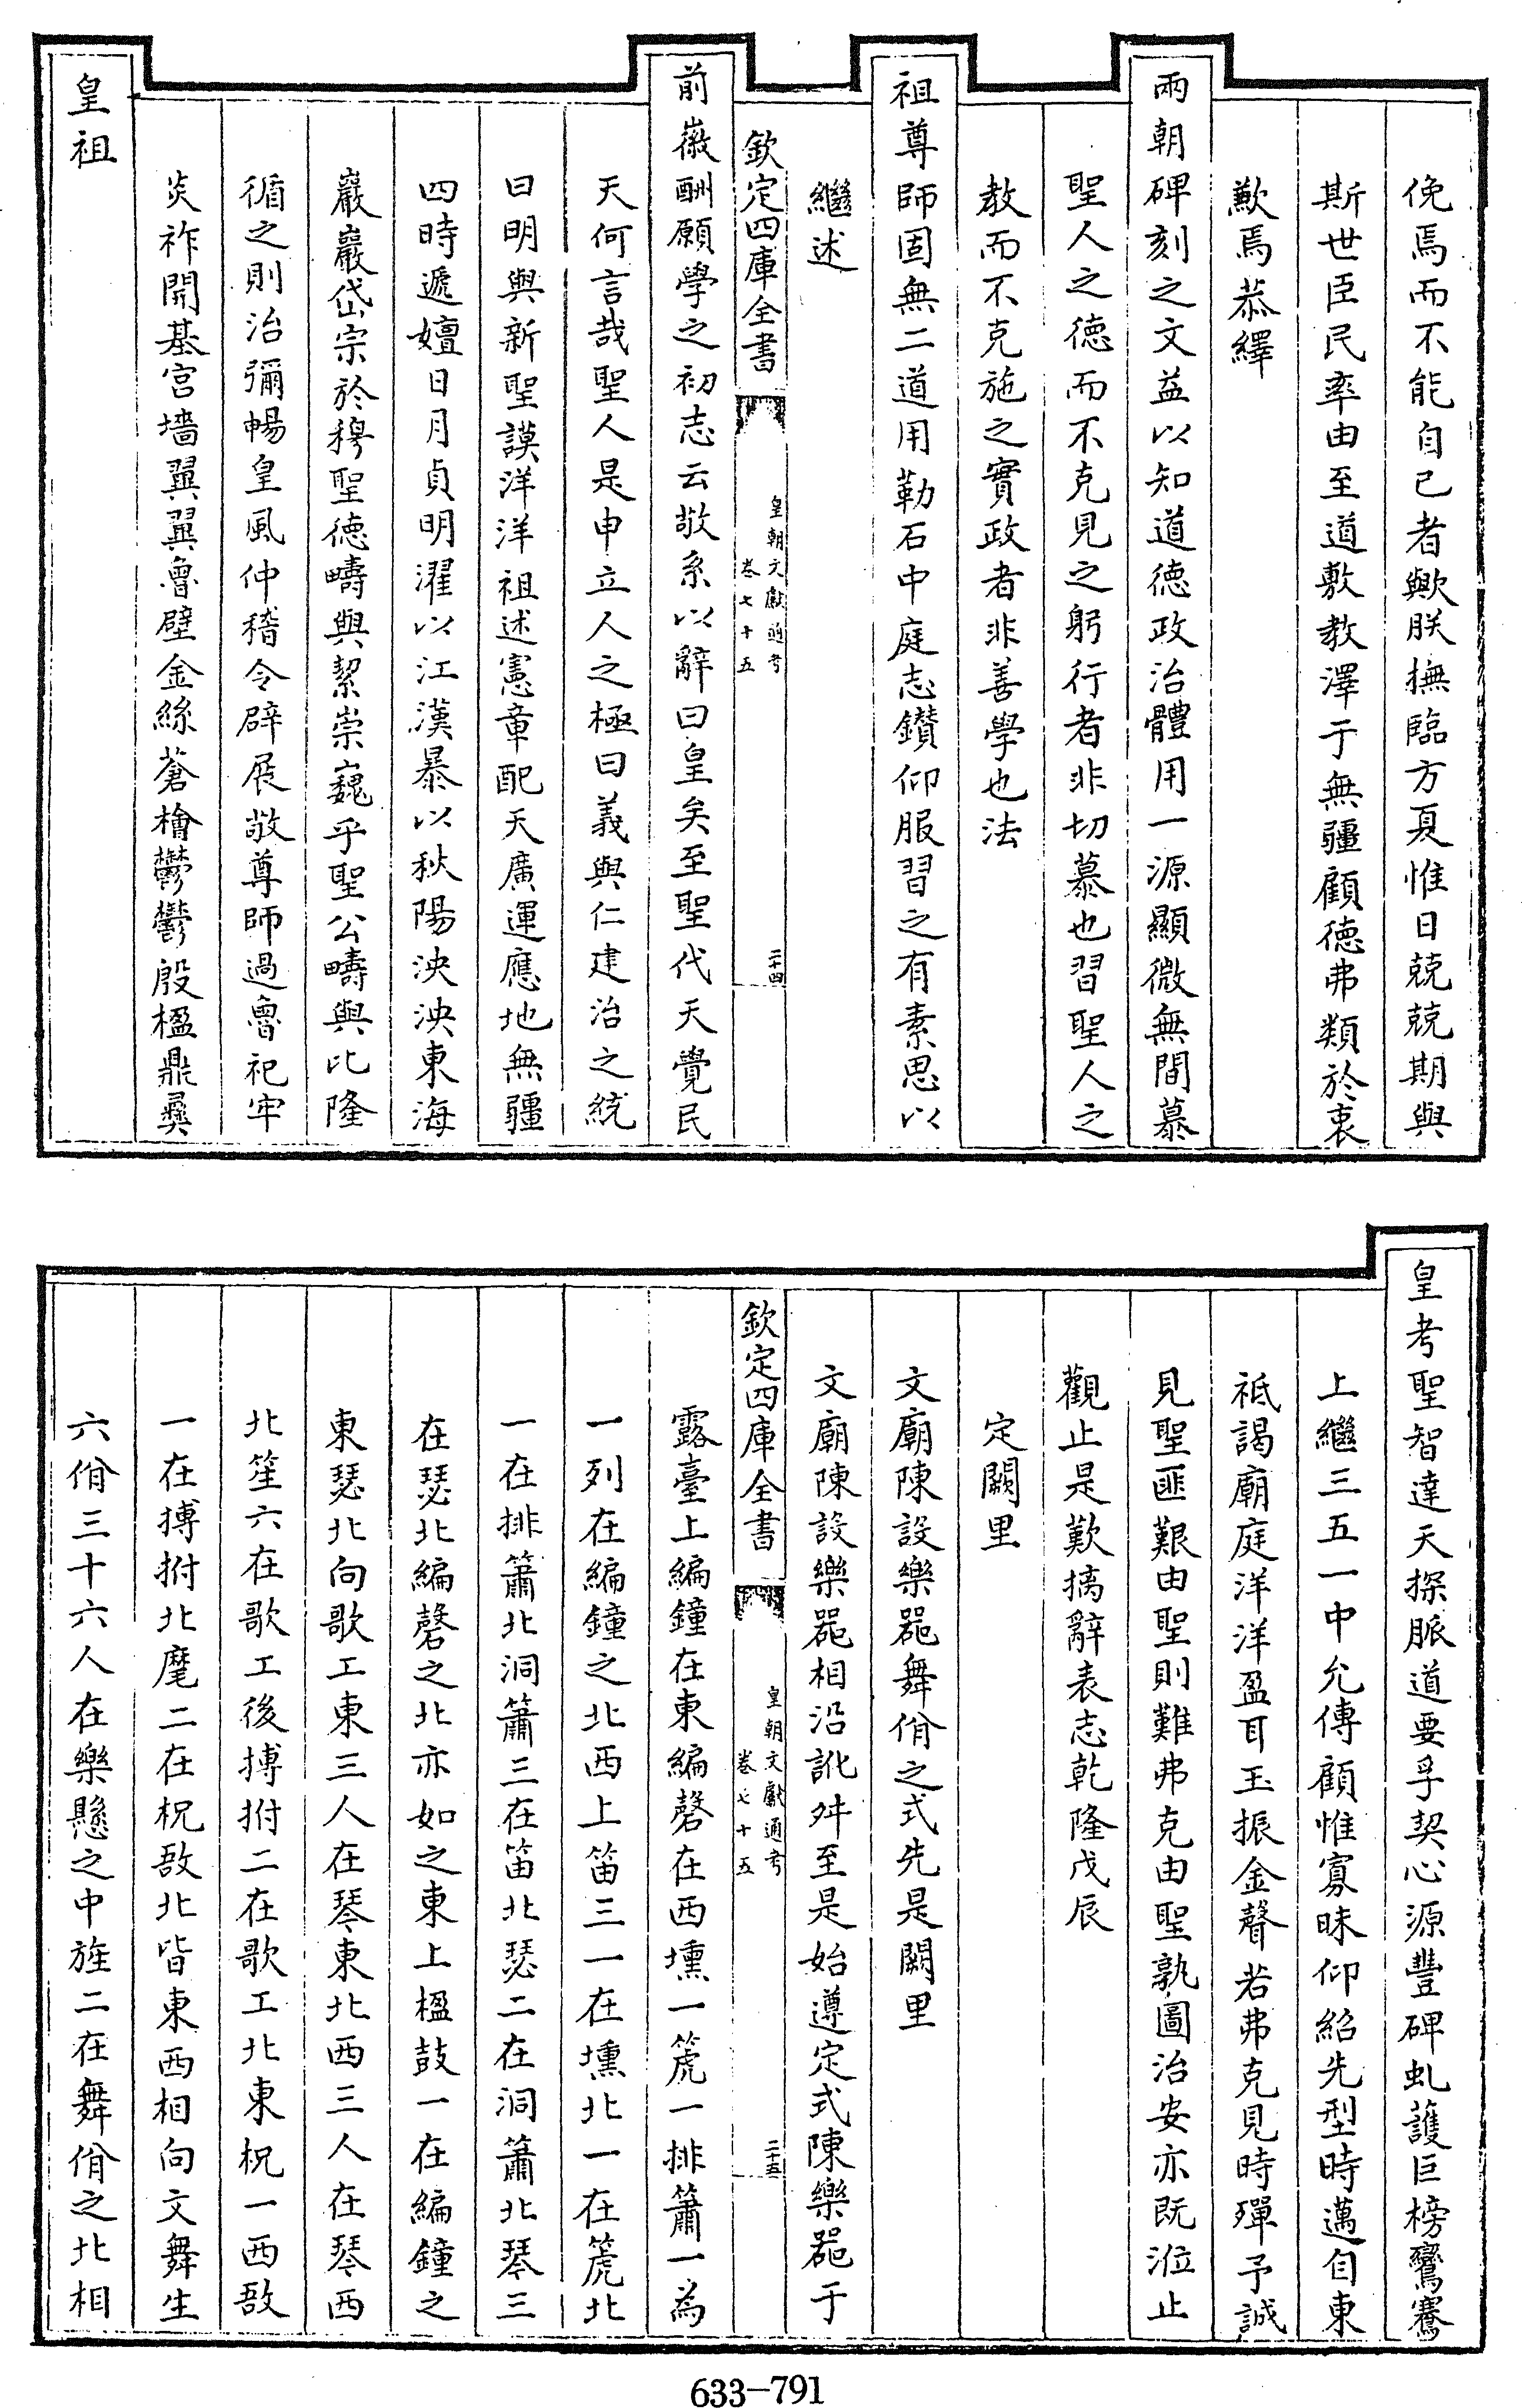 俛焉而不能自已者歟朕撫臨方夏惟日兢兢期與
斯世臣民率由至道敷教澤于無疆顧德弗類於衷
歉焉恭繹
兩朝碑刻之文益以知道德政治體用一源顯微無間慕
聖人之德而不克見之躬行者非切慕也習聖人之
教而不克施之實政者非善學也法
祖尊師固無二道用勒石中庭志鑽仰服習之有素思以
繼述
欽定四庫全書
皇朝文獻通考
卷七十五
二十四
前徽酬願學之初志云敬系以辭曰皇矣至聖代天覺民
天何言哉聖人是申立人之極曰義與仁建治之統
曰明與新聖謨洋洋祖述憲章配天廣運應地無疆
四時遞嬗日月貞明濯以江漢暴以秋陽泱泱東海
巖巖岱宗於穆聖德疇與絜崇巍乎聖公疇與比隆
循之則治彌暢皇風仲稽令辟展敬尊師過魯祀牢
炎祚開基宮墻翼翼魯壁金絲蒼檜鬱鬱殷楹鼎彝
皇祖
皇考聖智達天探脈道要孚契心源豐碑虬護巨榜鸞騫
上繼三五一中允傳顧惟寡昧仰紹先型時邁自東
祗謁廟庭洋洋盈耳玉振金聲若弗克見時殫予誠
見聖匪艱由聖則難弗克由聖孰圖治安亦既涖止
觀止是歎摛辭表志乾隆戊辰
定闕里
文廟陳設樂器舞佾之式先是闕里
文廟陳設樂器相沿訛舛至是始遵定式陳樂器于
欽定四庫全書
皇朝文獻通考
卷七十五
二十五
露臺上編鐘在東編磬在西壎一篪一排簫一為
一列在編鐘之北西上笛三一在壎北一在篪北
一在排簫北洞簫三在笛北瑟二在洞簫北琴三
在瑟北編磬之北亦如之東上楹鼓一在編鐘之
東瑟北向歌工東三人在琴東北西三人在琴西
北笙六在歌工後搏拊二在歌工北東柷一西敔
一在搏拊北麾二在柷敔北皆東西相向文舞生
六佾三十六人在樂懸之中旌二在舞佾之北相
633-791